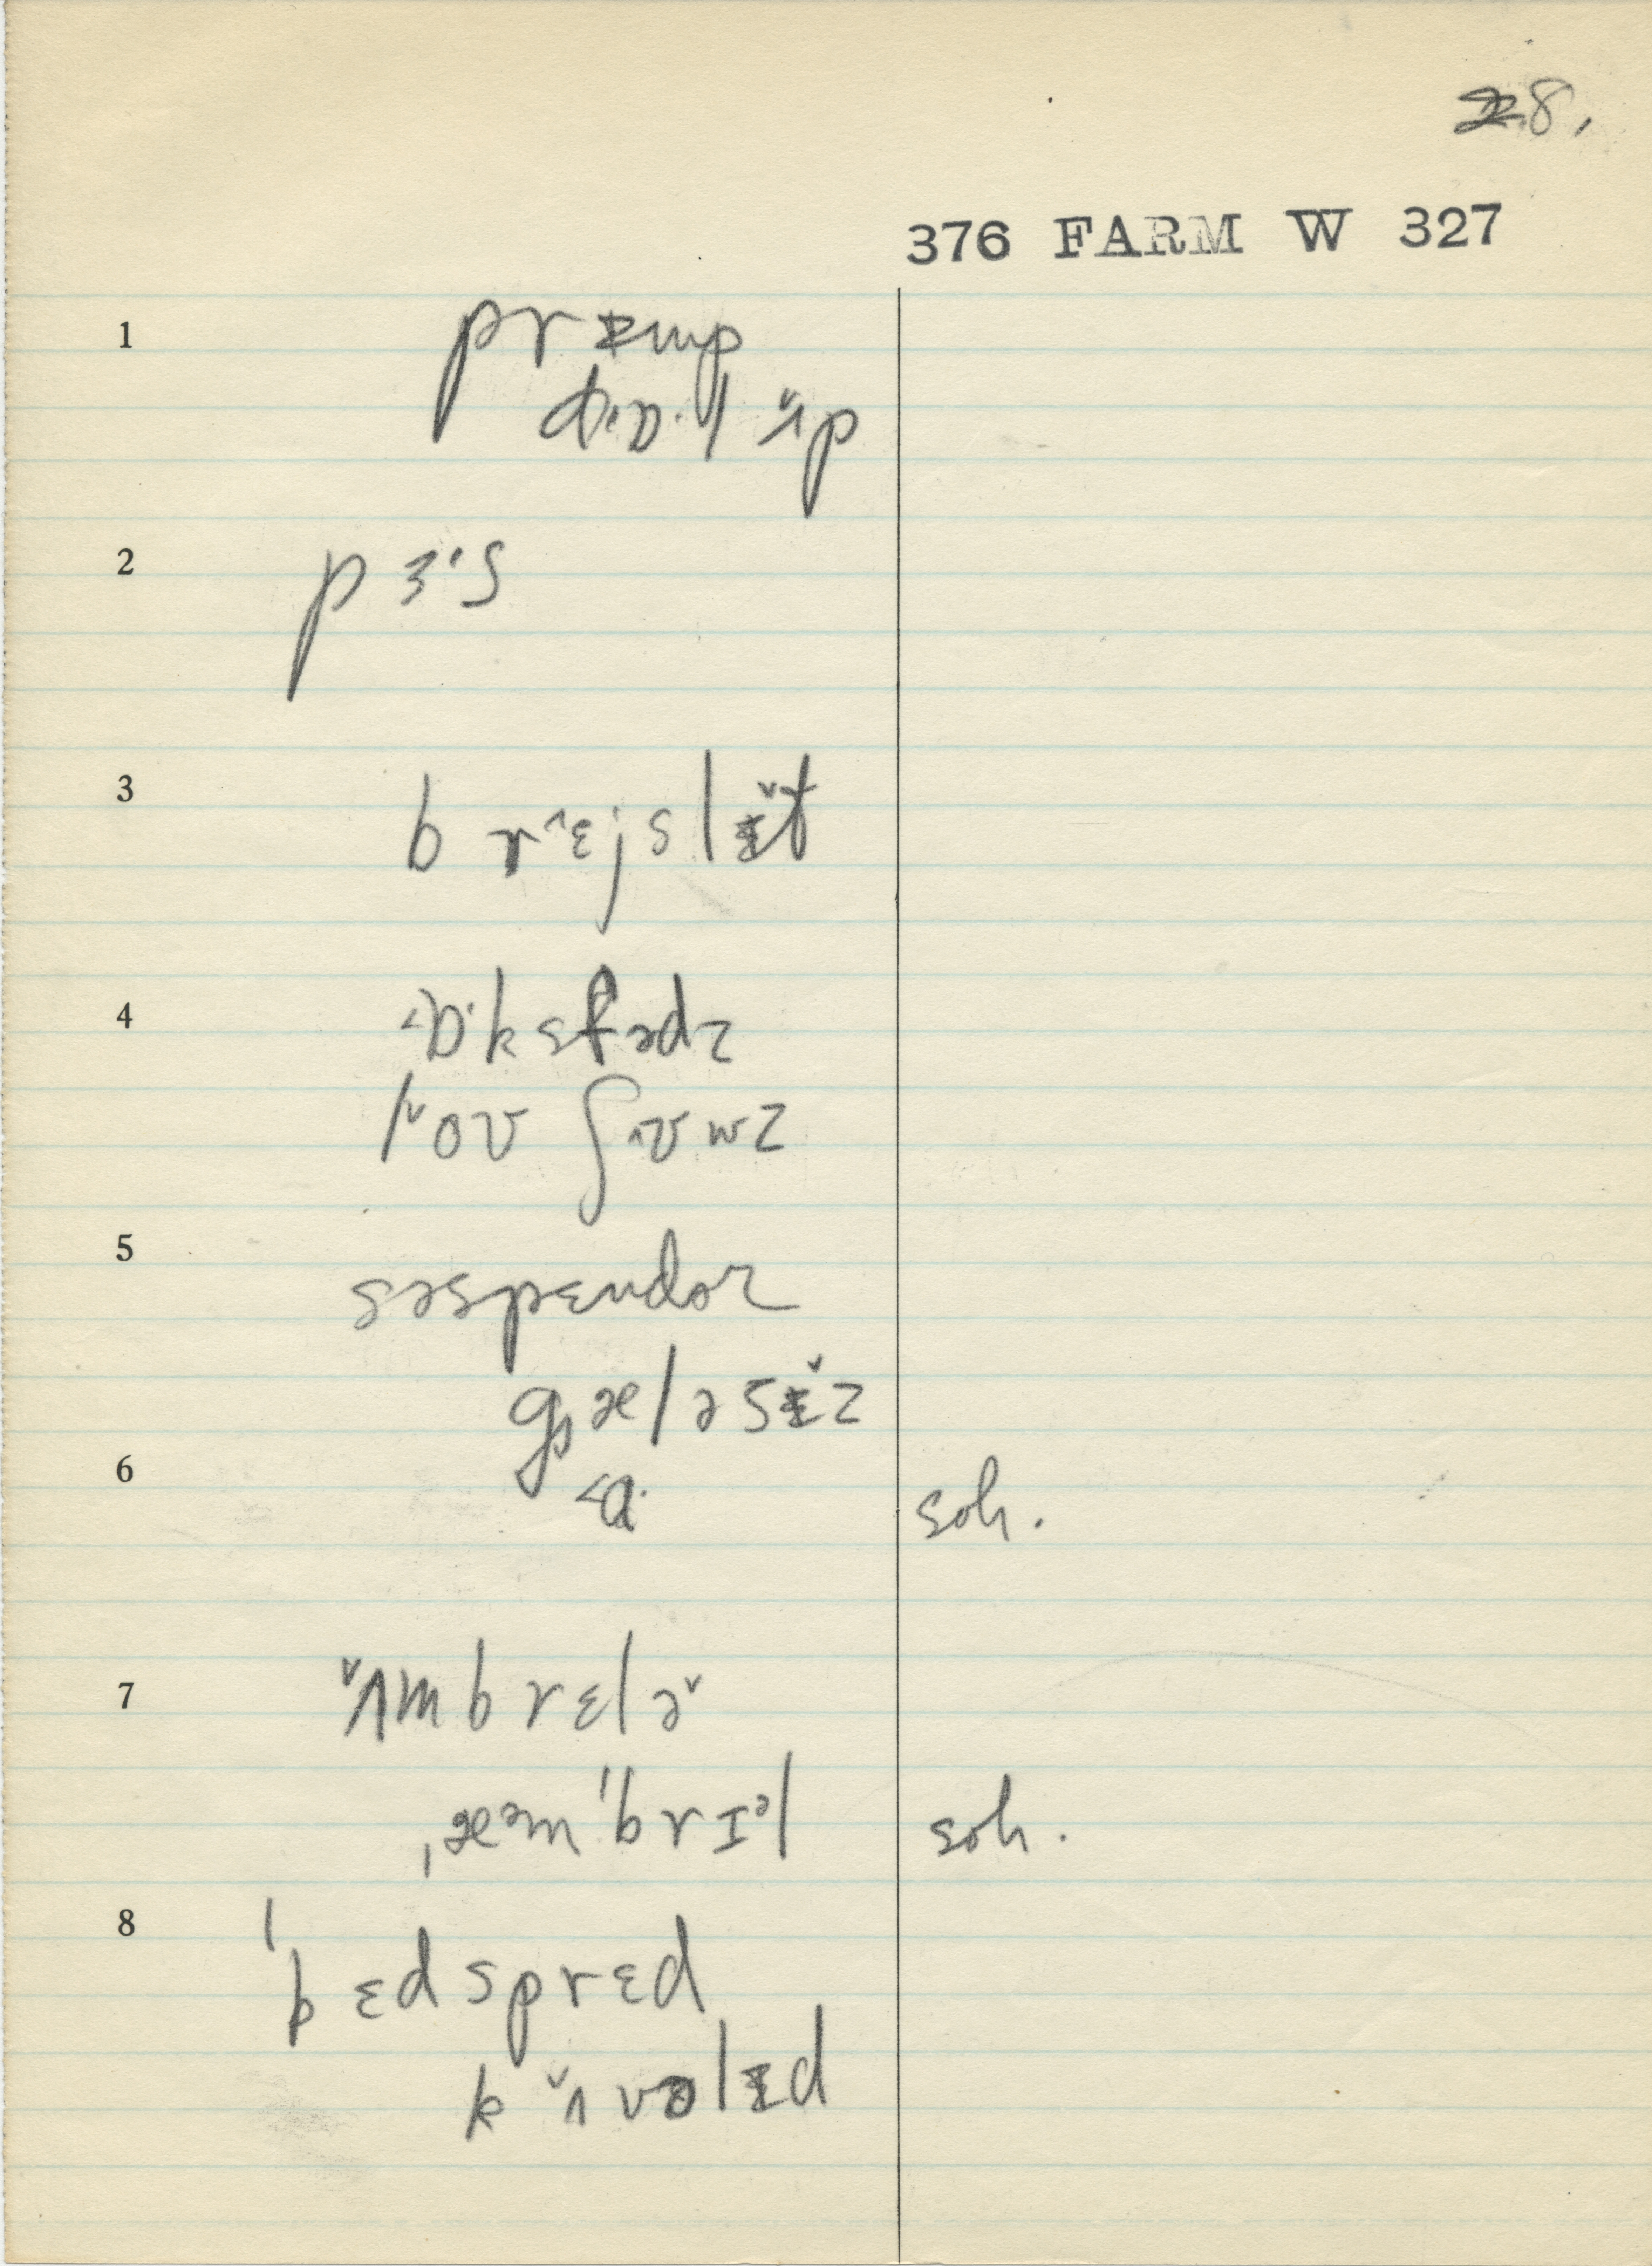 8.
376 FARM W 327
1 prɨmp
dɒ·l ʌ̌p
2 pɜ·s
3 br ɛjslɨ̌t
4 ɒ·ksfədz
lov ʃʊwz
5 səspɛndəz
gæləsɨ̌z
6 ɒ· soh.
7 ʌ̌mbrɛlə̌
ˌæəmˈbrɪəl soh.
8 ˈbɛdsprɛd
kʌ̌vəlɨd